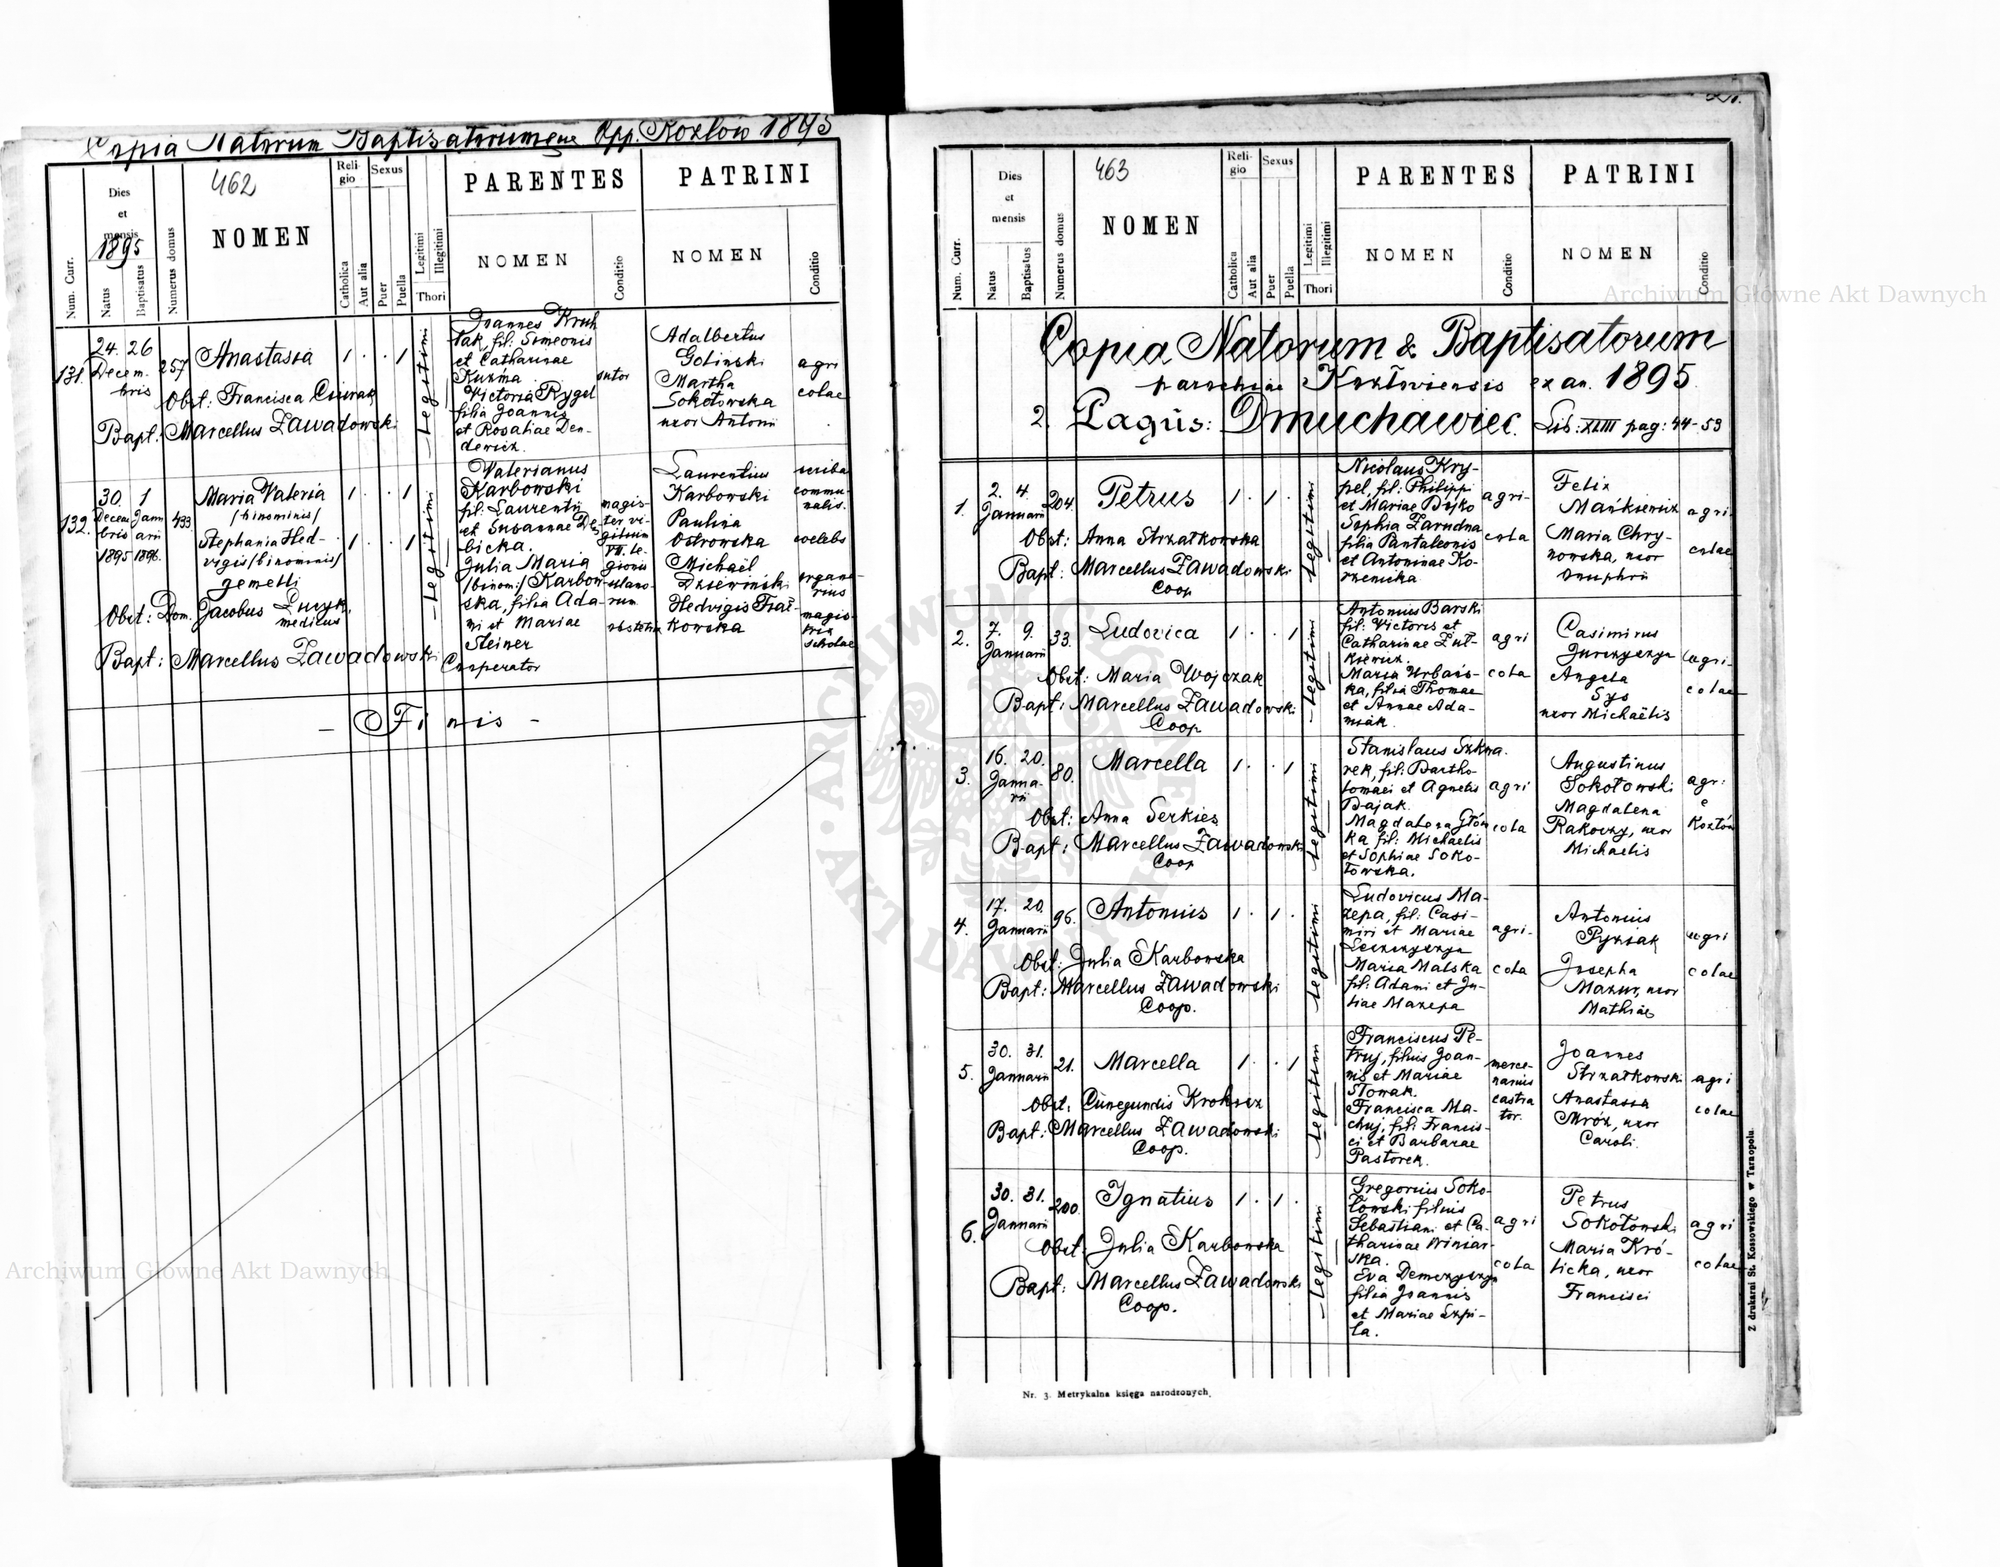 Copia Natorum Baptisatorumque Opp. Kozłów 1895
462
Num. Curr.
Dies
et
mensis
1895
Natus
Baptisatus
Numerus domus
NOMEN
Reli-
gio
Catholica
Aut alia
Sexus
Puer
Puella
Legitimi
Illegitimi
Thori
PARENTES
NOMEN
Conditio
PATRINI
NOMEN
Conditio
131.
24. 26
Decem-
bris
257
Anastasia
1 . . 1
Legitimi
Obst: Francisca
Bapt: Marcellus Zawadowski
Joannes Kruh
lak, fil: Simeonis
et Catharinae
Kuzma.
Victoria Rygel
filia Joannis
et Rosaliae Den-
dewicz.
sutor
Adalbertus
Golinski
Martha
Sokołowska
uxor Antonii
agri
colae
132.
30. 1
Decem Janu
bris arii
1895 1896.
493
Maria Valeria
/binominis/
1 . . 1
Stephania Hed-
vigis /binominis/
1 . . 1
gemelli
Legitimi
Obst: Dom. Jacobus
medicus
Bapt: Marcellus Zawadowski
Cooperator
Valerianus
Karbowski
fil: Laurentii
et Susannae De
bicka.
Julia Maria
/binomi/ Karbow-
ska, filia Ada-
mi et Mariae
Steiner
magis-
ter vi-
gilum
VII. le-
gionis
ulano-
rum
obstetrix
Laurentius
Karbowski
Paulina
Ostrowska
Michaël
Dziewiński
Hedvigis Frat-
kowska
scriba
commu-
nalis.
coelebs
organa-
rius
magis-
tra
scholae
- Finis -
463
Num. Curr.
Dies
et
mensis
Natus
Baptisatus
Numerus domus
NOMEN
Reli-
gio
Catholica
Aut alia
Sexus
Puer
Puella
Legitimi
Illegitimi
Thori
PARENTES
NOMEN
Conditio
PATRINI
NOMEN
Conditio
Copia Natorum & Baptisatorum
parochiae Kozłoviensis ex an. 1895
2. Pagus: Dmuchawiec. Lib: XLIII pag: 44-53
1.
2. 4.
Januarii
204.
Petrus
1 . 1 .
Legitimi
Obst: Anna Strzałkowska
Bapt: Marcellus Zawadowski
Coop
Nicolaus Kry-
pel, fil: Philippi
et Mariae Bojko
Sophia Zarudna
filia Pantaleonis
et Antoninae Ko-
rzenicka
agri-
cola
Felix
Mańkiewicz
Maria Chry-
nowska, uxor
Onuphrii
agri-
colae
2.
7. 9.
Januarii
33.
Ludovica
1 . . 1
Legitimi
Obst: Maria Wojczak
Bapt: Marcellus Zawadowski
Coop
Antonius Barski
fil: Victoris et
Catharinae Żuł-
kiewicz.
Maria Urbańs-
ka, filia Thomae
et Annae Ada-
miak.
agri
cola
Casimirus
Jurczyczyn
Angela
Sys
uxor Michaëlis
agri-
colae
3.
16. 20.
Janua-
rii
80.
Marcella
1 . . 1
Legitimi
Obst: Anna Serkies
Bapt: Marcellus Zawadowski
Coop
Stanislaus Szkwa.
rek, fil: Bartho-
lomaei et Agnetis
Bajak.
Magdalena Głów
ka fil: Michaelis
et Sophiae Soko-
łowska.
agri
cola
Augustinus
Sokołowski
Magdalena
Rakoczy, uxor
Michaelis
agr:
e
Kozłów
4.
17. 20.
Januarii
96.
Antonius
1 . 1 .
Legitimi
Obst: Julia Karbowska
Bapt: Marcellus Zawadowski
Coop.
Ludovicus Ma-
zepa, fil: Casi-
miri et Mariae
Leszczyszyn
Maria Malska
fil: Adami et Ju-
liae Mazepa
agri-
cola
Antonius
Pyziak
Josepha
Mazur, uxor
Mathiae
agri
colae
5.
30. 31.
Januarii
21.
Marcella
1 . . 1
Legitimi
Obst. Cunegundis Krokosz
Bapt: Marcellus Zawadowski
Coop.
Franciscus Pe-
tryj, filius Joan-
nis et Mariae
Słowak.
Francisca Ma-
chuj, fil: Francis-
ci et Barbarae
Pastorek.
merce-
narius
castra
tor.
Joannes
Strzałkowski
Anastasia
Mróz, uxor
Caroli.
agri
colae
6.
30. 31.
Januarii
200
Ignatius
1 . 1 .
Legitimi
Obst. Julia Karbowska
Bapt: Marcellus Zawadowski
Coop.
Gregorius Soko-
łowski filius
Sebastiani et Ca-
tharinae Winiar-
ska.
Eva Demczyszyn
filia Joannis
et Mariae Szpi-
la.
agri
cola
Petrus
Sokołowski
Maria Kró-
licka, uxor
Francisci
agri
colae
Nr. 3. Metrykalna księga narodzonych.
Z drukarni St. Kossowskiego w Tarnopolu.
Archiwum Główne Akt Dawnych
Archiwum Główne Akt Dawnych
ARCHIWUM GŁÓWNE
AKT DAWNYCH